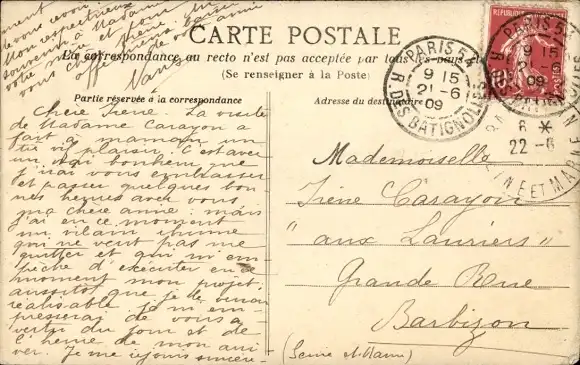 CARTE POSTALE
La correspondance au recto n'est pas acceptée par tous les pays
(Se renseigner à la Poste)
Partie réservée à la correspondance
Adresse du destinataire
Chère Irène. La visite
de Madame Carayon a
fait à maman un
vif plaisir. C'est avec
un vrai bonheur que
j'irai vous embrasser
et passer quelques bon
nes heures avec vous
ma chère amie: mais
j'ai en ce moment
un vilain rhume
qui ne veut pas me
quitter et qui m'em
pêche d'exécuter en ce
moment mon projet.
aussitôt que je le verrai
réalisable, je m'em-
presserai de vous a
vertir du jour et de
l'heure de mon arri
ver. Je me réjouis sincère-
ment
de vous revoir.
Mon respectueux
souvenir à Madame
votre mère et pour
vous chère Irène
amie
Mademoiselle
Irène Carayon
"aux Lauriers"
Grande Rue
Barbizon
(Seine et Marne)
PARIS 54
9 15
21-6
09
R. DES BATIGNOLLES
REPUBLIQUE FRANÇAISE
PARIS 54
9 15
21-6
09
6 *
22-6
SEINE ET MARNE